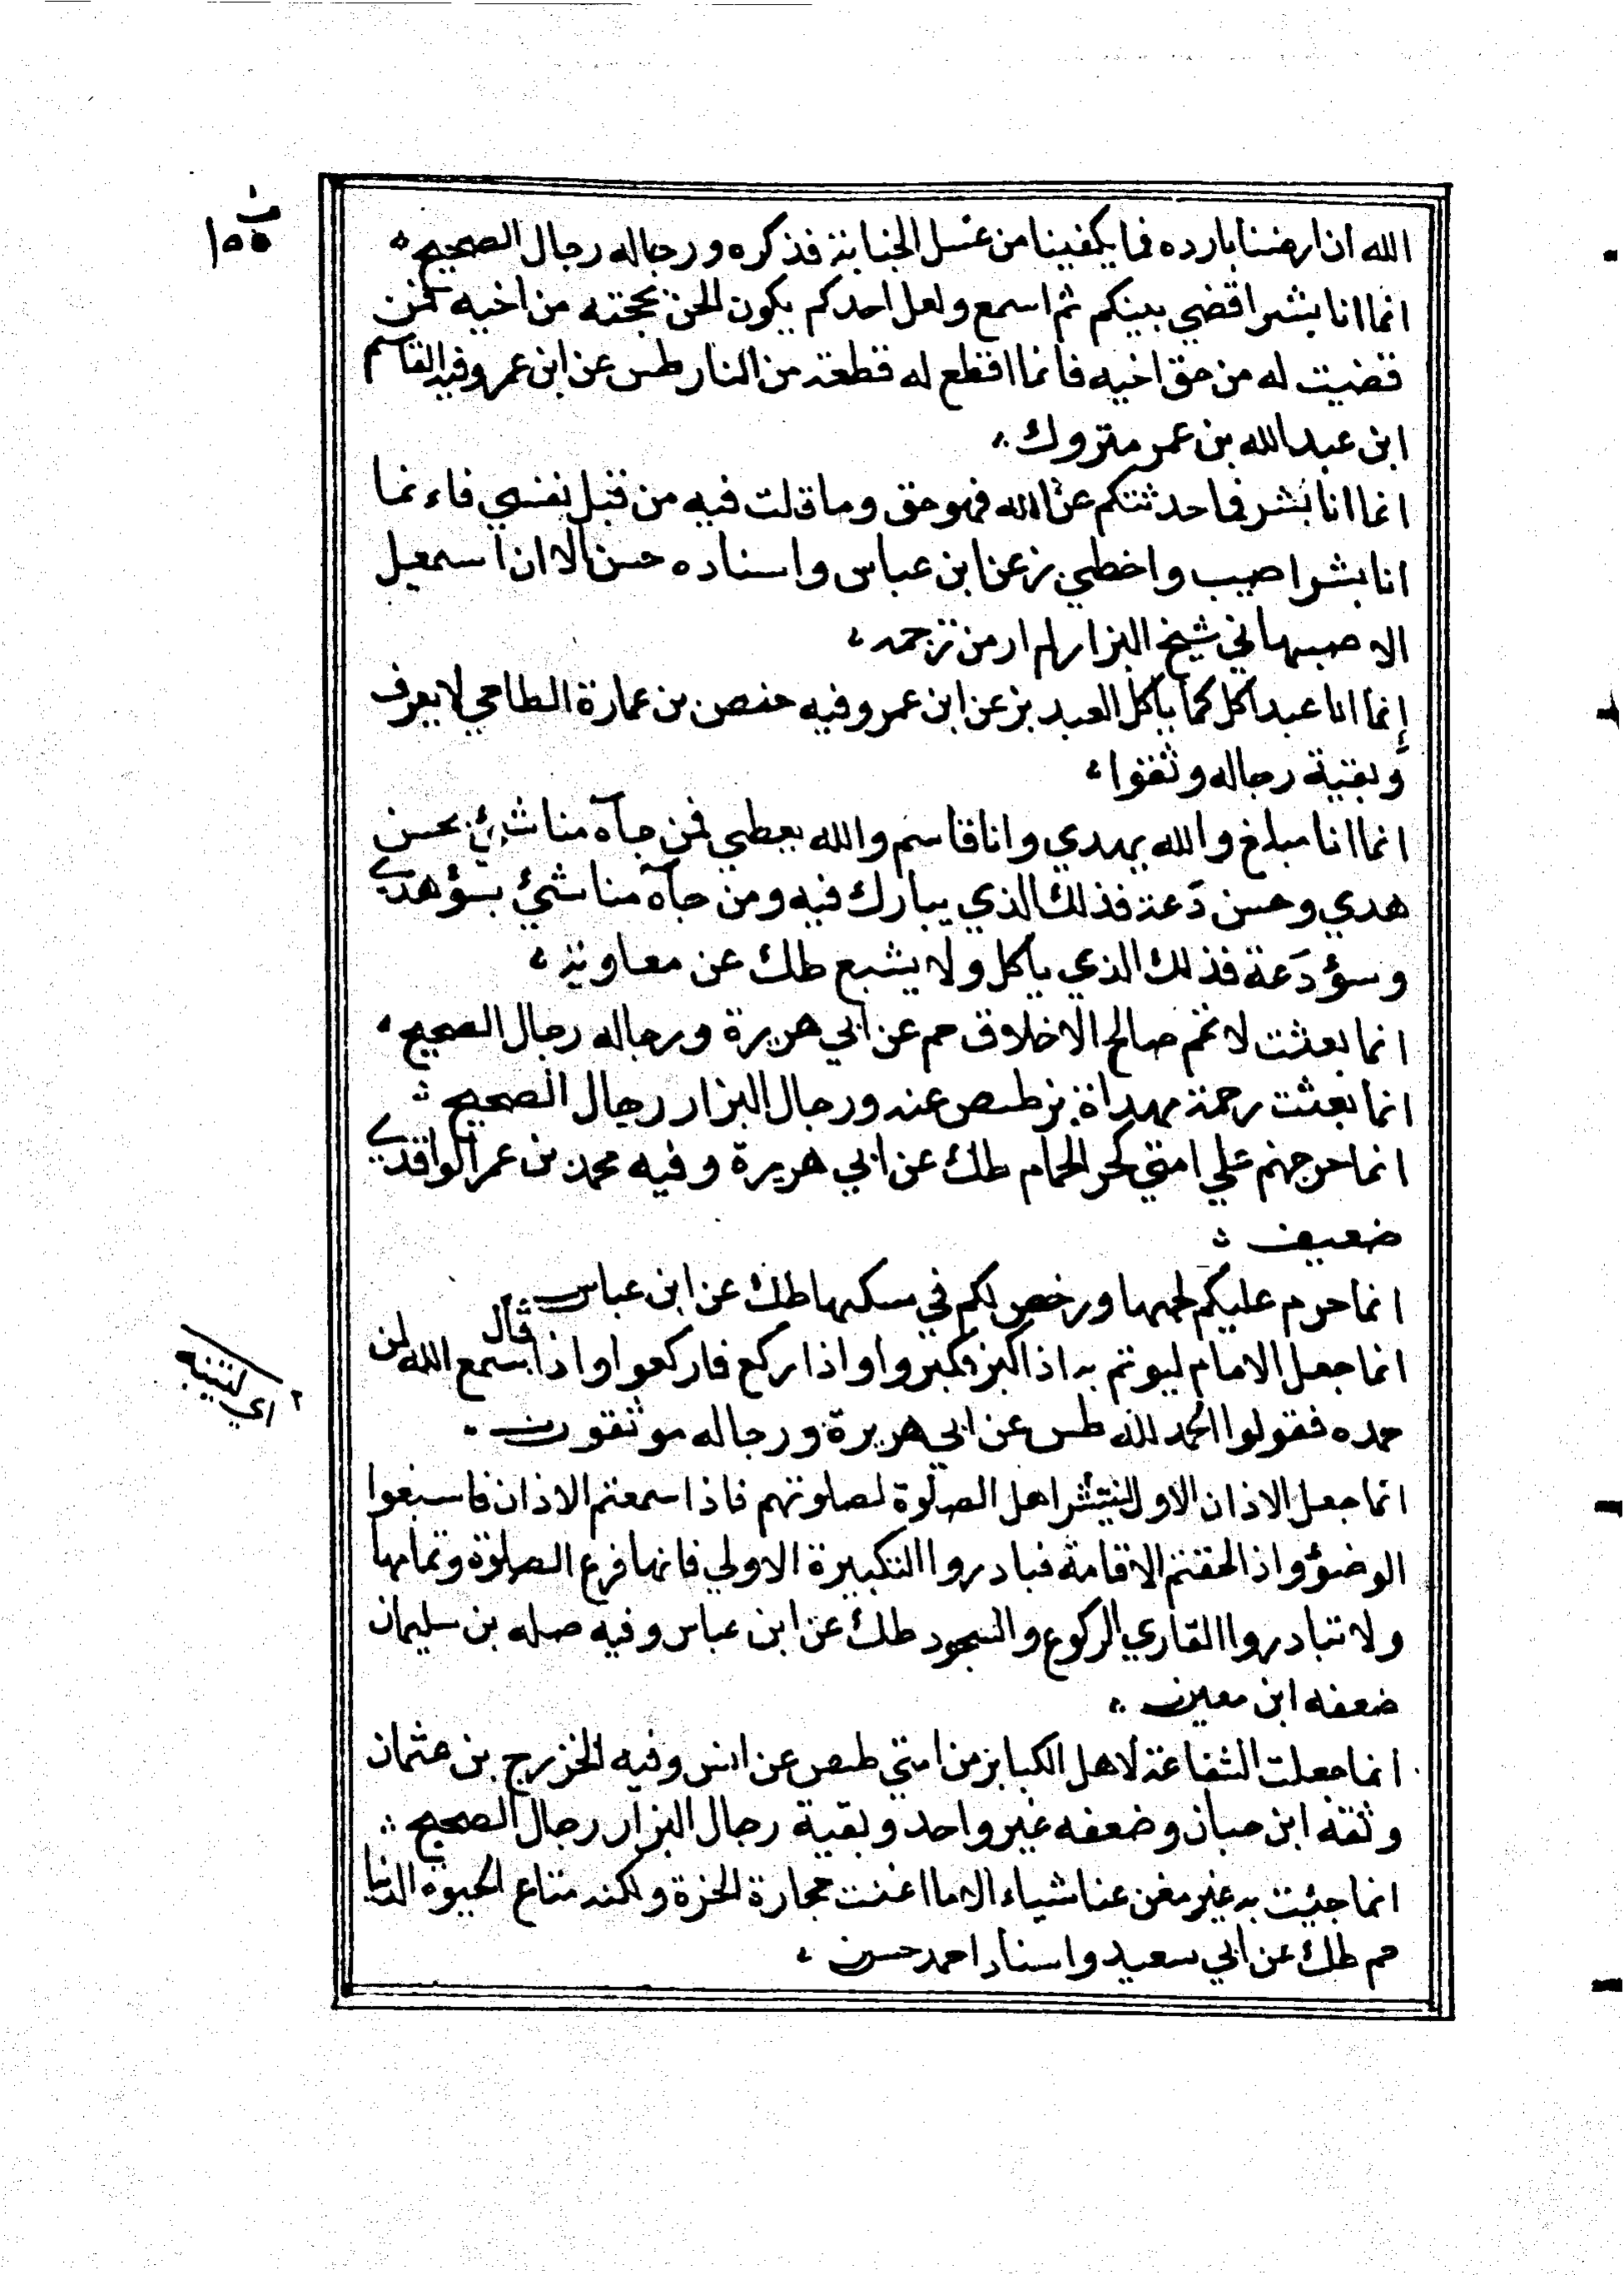 ث
١٥٥
الله ان ارضنا بارده فما يكفينا من غسل الجنابة فذكره ورجاله رجال الصحيح
انما انا بشر اقضي بينكم ثم اسمع ولعل احدكم يكون الحن بحجته من اخيه فمن
قضيت له من حق اخيه فانما اقطع له قطعة من النار طس عن ابن عمر وفيه القاسم
ابن عبد الله بن عمر متروك
انما انا بشر فما حدثتكم عن الله فهو حق وما قلت فيه من قبل نفسي فاءنما
انا بشر اصيب واخطي بز عن ابن عباس واسناده حسن الا ان اسمعيل
الاصبهاني شيخ البزار لم ار من ترجمه
إنما انا عبد اكل كما ياكل العبد بز عن ابن عمر وفيه حفص بن عمارة الطاحي لا يعرف
وبقية رجاله وثقوا
انما انا مبلغ والله يهدي وانا قاسم والله يعطي فمن جآه منا شيئ بحسن
هدي وحسن دَعة فذلك الذي يبارك فيه ومن جآه منا شيئ بسؤ هدي
وسؤ دَعة فذلك الذي ياكل ولا يشبع طك عن معاوية
انما بعثت لاتمم صالح الاخلاق حم عن ابي هريرة ورجاله رجال الصحيح
انما بعثت رحمة مهداة بز طس‍ص عنه ورجال البزار رجال الصحيح
انما حر جهنم علي امتي كحر الحمام طك عن ابي هريرة وفيه محمد بن عمر الواقدي
ضعيف
انما حرم عليكم لحمها ورخص لكم في مسكها طك عن ابن عباس
انما جعل الامام ليوتم به اذا كبر فكبروا واذا ركع فاركعوا واذا قال سمع الله لمن
حمده فقولوا الحمد لله طس عن ابي هريرة ورجاله موثقون
انما جعل الاذان الاول لينتشر اهل الصلوة لصلوتهم فاذا سمعتم الاذان فاسبغوا
٢ اي لتنبه
الوضؤ واذا لحقتم الاقامة فبادروا التكبيرة الاولي فانها فرع الصلوة وتمامها
ولا تبادروا القاري الركوع والسجود طك عن ابن عباس وفيه صله بن سليمان
ضعفه ابن معين
انما جعلت الشفاعة لاهل الكبائر من امتي طس‍ص عن انس وفيه الخزرج بن عثمان
وثقه ابن حبان وضعفه غير واحد وبقية رجال البزار رجال الصحيح
انما جئت به غير مغن عنا شياء الا ما اغنت حجارة الحرة ولكنه متاع الحيوة الدنيا
حم طك عن ابي سعيد واسناد احمد حسن